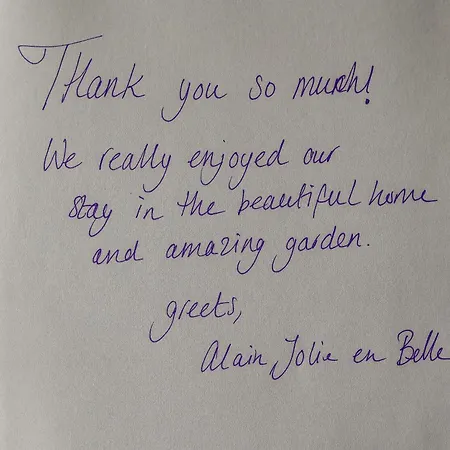 Thank you so much!
We really enjoyed our
stay in the beautiful home
and amazing garden.
greets,
Alain, Jolie en Belle